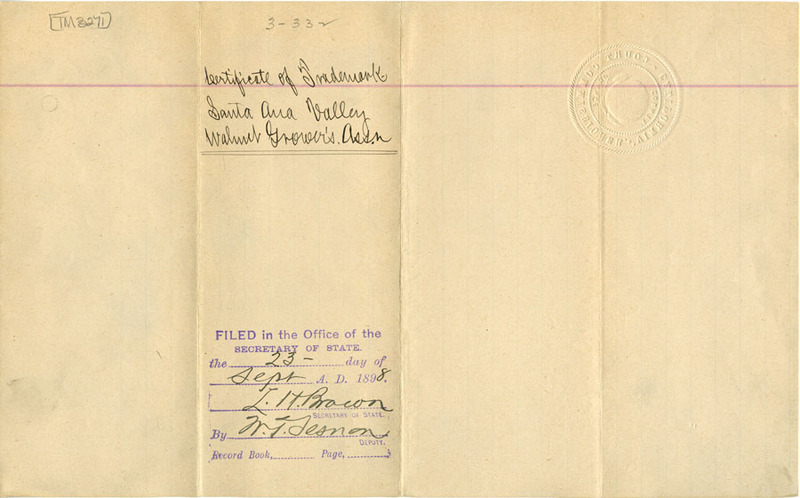 [TM 3271]
3-332
Certificate of Trademark
Santa Ana Valley
Walnut Grower's Assn
FILED in the Office of the
SECRETARY OF STATE.
the 23- day of
Sept A. D. 1898.
L. H. Brown
SECRETARY OF STATE.
By W. T. Sesnon
DEPUTY.
Record Book, Page,